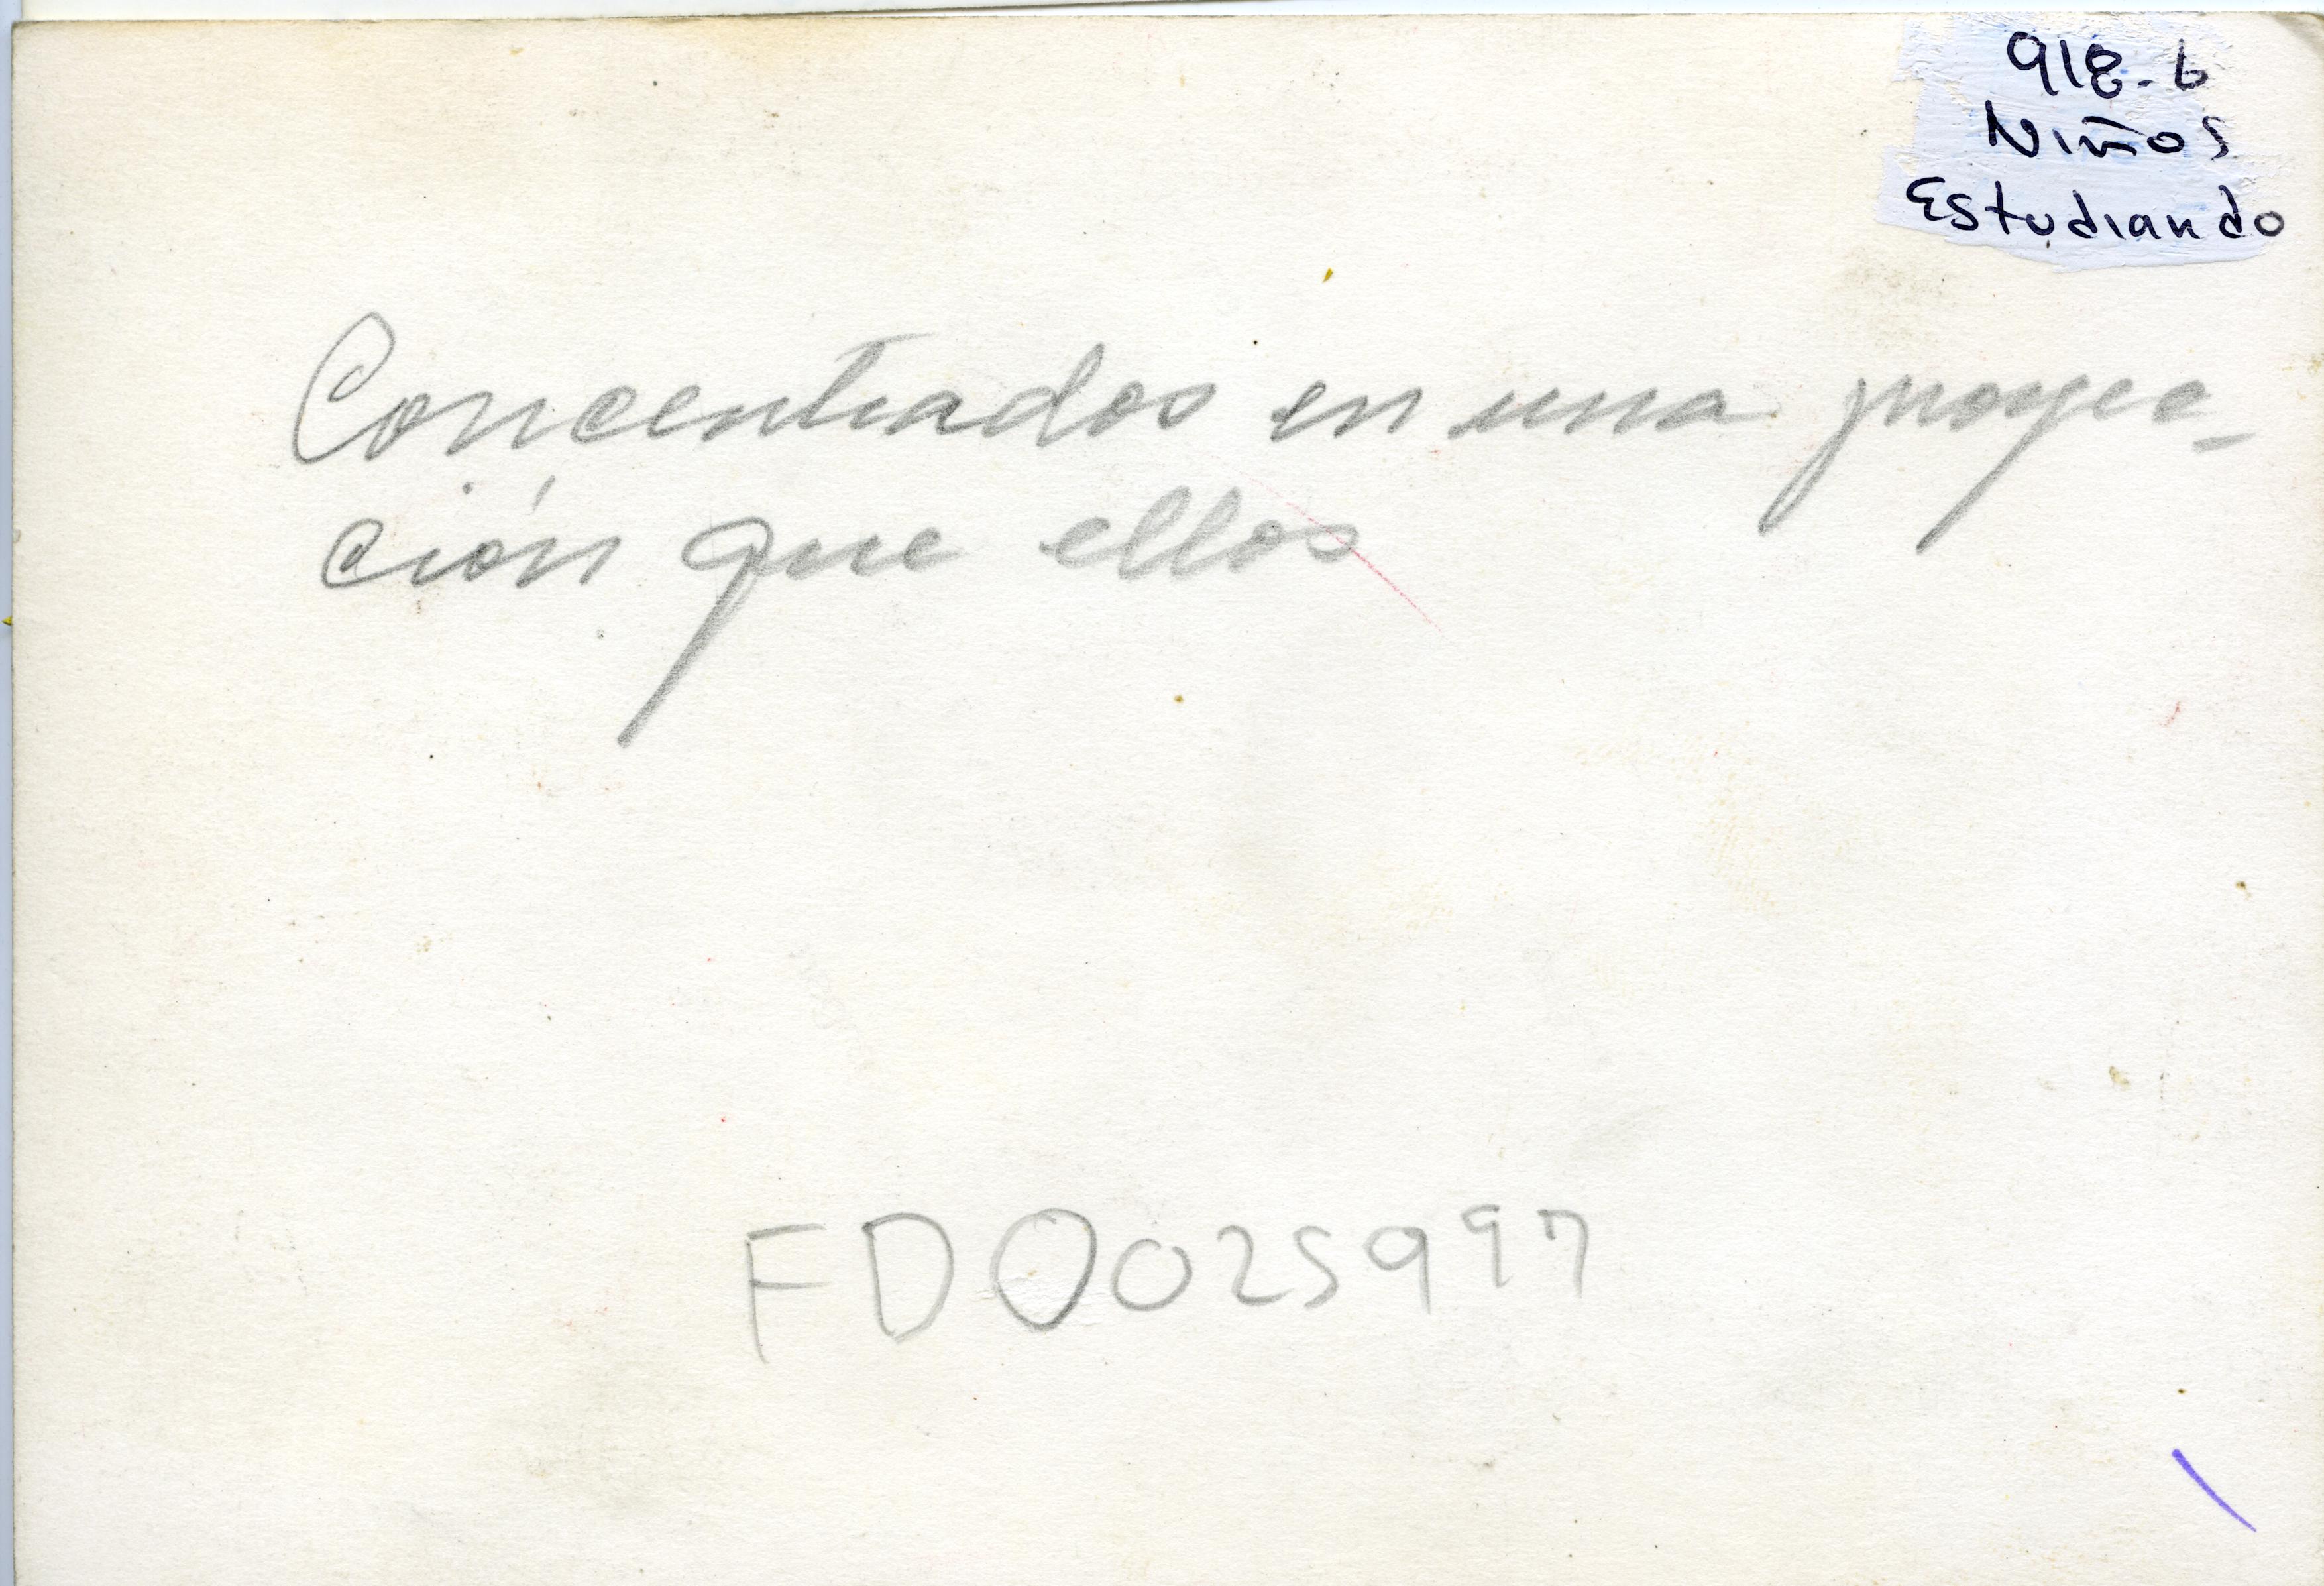 918-6
Niños
Estudiando
Concentrados en una proyec-
ción que ellos
FD0025997